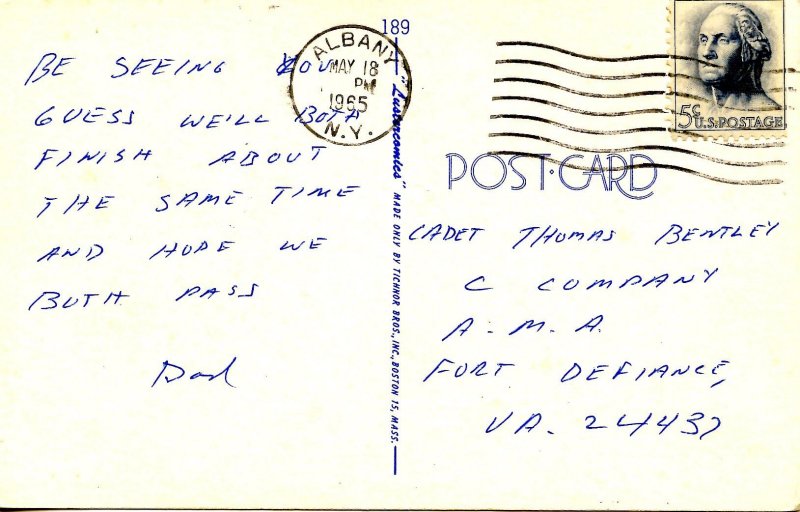 BE SEEING YOU
GUESS WE'LL BOTH
FINISH ABOUT
THE SAME TIME
AND HOPE WE
BOTH PASS
Dad
189
"Lustercomics" MADE ONLY BY TICHNOR BROS., INC., BOSTON 15, MASS.
ALBANY
MAY 18
PM
1965
N.Y.
5¢ U.S. POSTAGE
POST·CARD
CADET THOMAS BENTLEY
C COMPANY
A. M. A.
FORT DEFIANCE,
VA. 24437